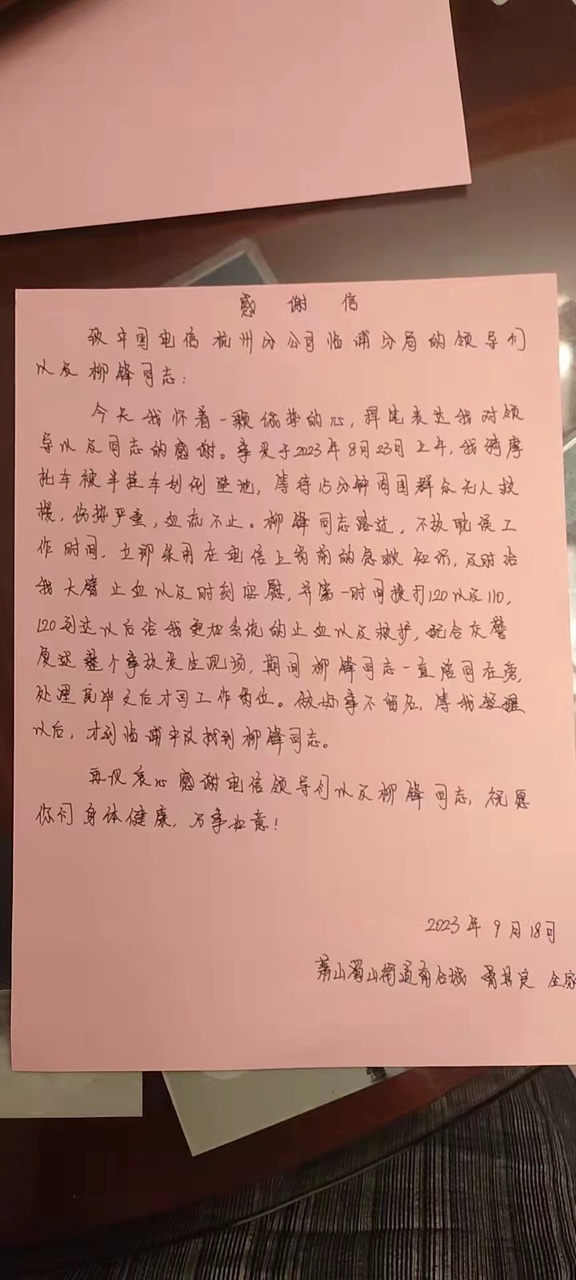 感谢信
致中国电信杭州分公司临浦分局的领导们
以及柳锋同志:
今天我怀着一颗 的心,择笔表达我对领
导以及同志的感谢。事来于2023年8月23日上午,我骑摩
托车被半挂车刮倒坠地,等待15分钟周围群众无人救
援,伤势严重,血流不止。柳锋同志路过,不放耽误工
作时间,立即采用在电信上岗前的急救知识,及时给
我大臂止血以及时刻安慰,并第一时间拨打120以及110,
120到达以后给我更加系统的止血以及救护,配合交警
复述整个事故发生现场,期间柳锋同志一直陪同在旁,
处理完毕之后才回工作岗位。做好事不留名,等我 醒
以后,才到临浦 找到柳锋同志。
再次衷心感谢电信领导们以及柳锋同志,祝愿
你们身体健康,万事如意!
2023年9月18日
萧山蜀山街道 全家